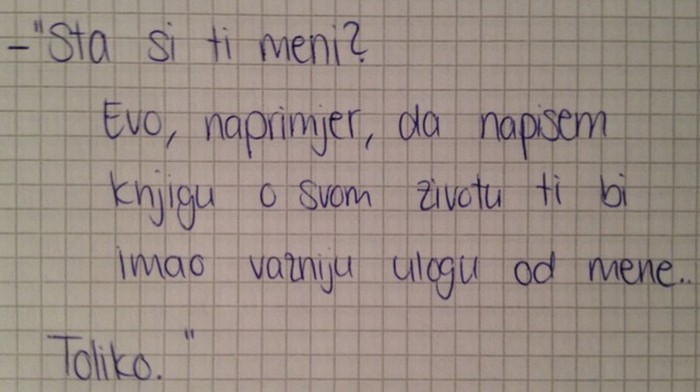 -"Sta si ti meni?
Evo, naprimjer, da napisem
knjigu o svom zivotu ti bi
imao vazniju ulogu od mene..
Toliko."